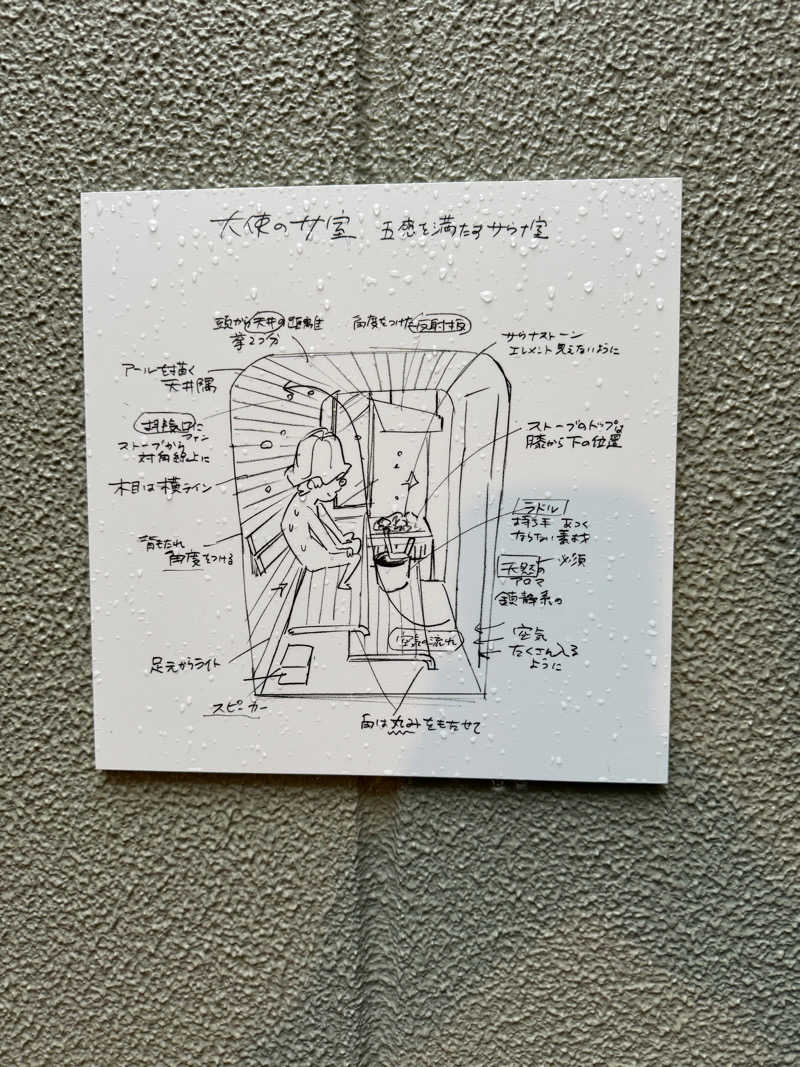 大使のサ室 五感を満たすサウナ室
頭から天井の距離
拳2つ分
角度をつけた反射板
サウナストーン
エレメント見えないように
アールを描く
天井隅
排気口に
ファン
ストーブから
対角線上に
ストーブのトップは
膝から下の位置
木目は横ライン
ラドル
持ち手 あつく
ならない素材
背もたれ
角度をつける
天然の
必須
アロマ
鎮静系の
空気の流れ
空気
たくさん入る
ように
足元からライト
スピーカー
角は丸みをもたせて